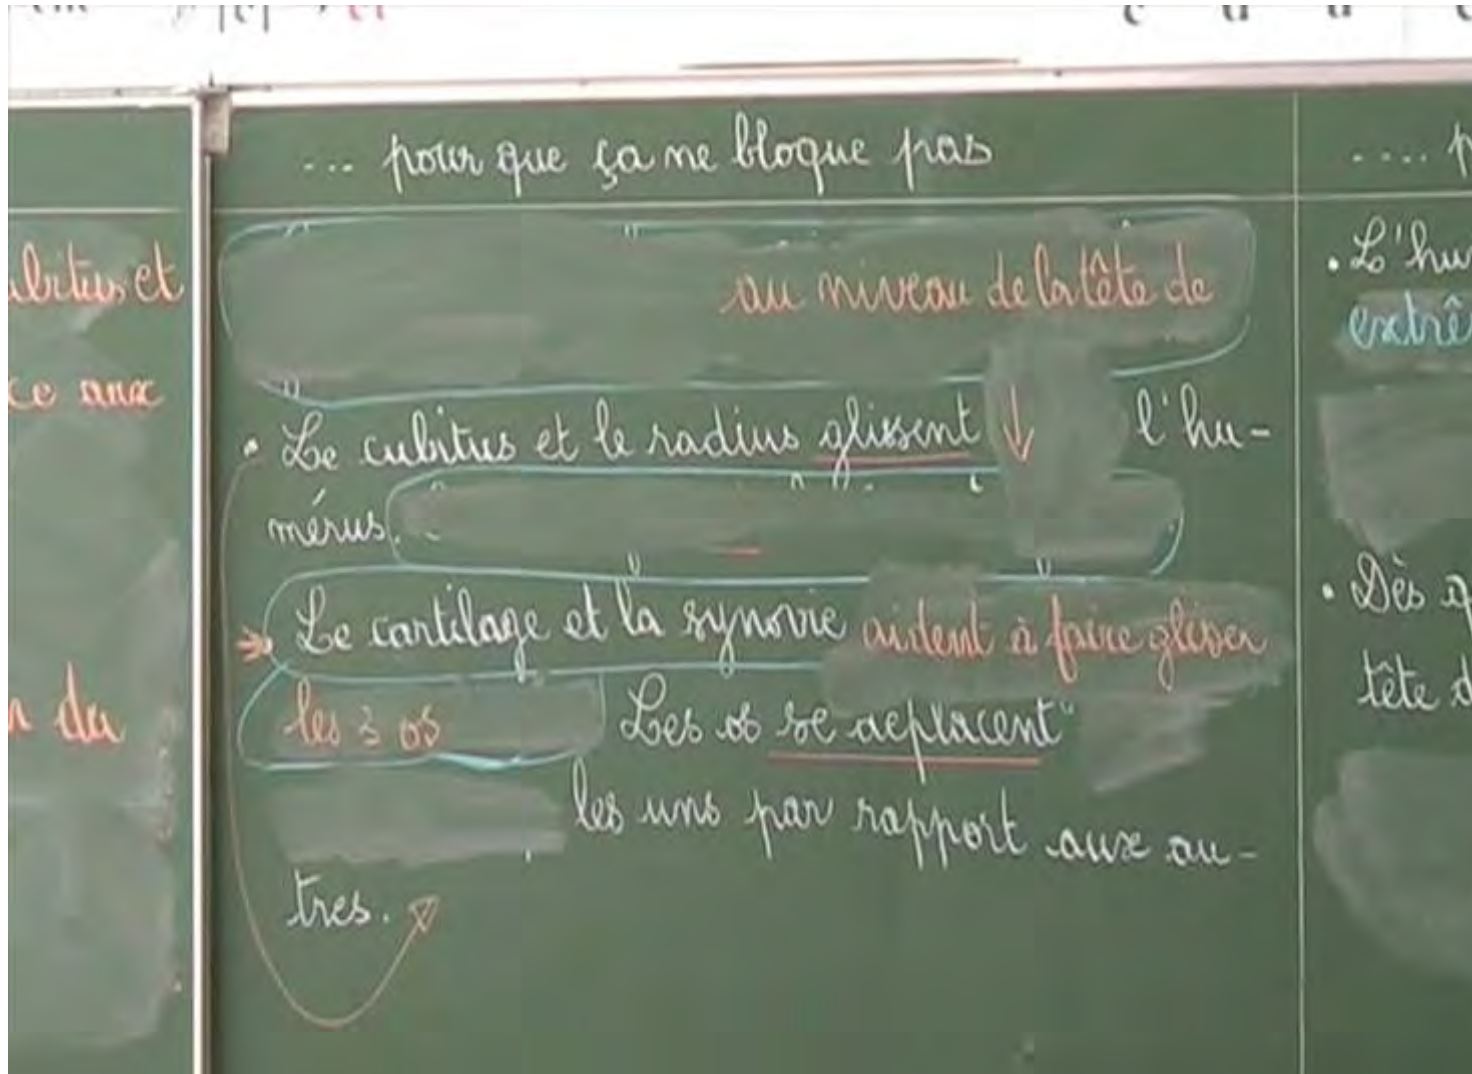 ... pour que ça ne bloque pas
au niveau de la tête de
• Le cubitus et le radius glissent ↓ l'hu-
mérus.
Le cartilage et la synovie aident à faire glisser
les 3 os Les os se déplacent
les uns par rapport aux au-
tres.
ubitus et
ce aux
n du
.... p
• L'hu
extrê
• Dès q
tête d